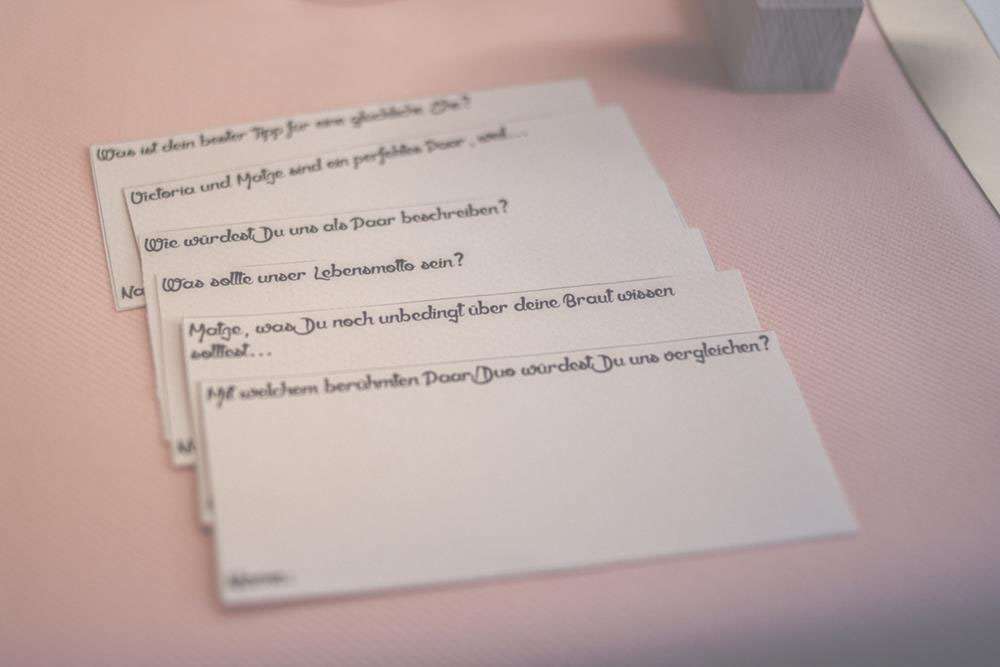 Was ist dein bester Tipp für eine glückliche Ehe?
Victoria und Matze sind ein perfektes Paar, weil...
Wie würdest Du uns als Paar beschreiben?
Was sollte unser Lebensmotto sein?
Matze, was Du noch unbedingt über deine Braut wissen
solltest...
Mit welchem berühmten Paar/Duo würdest Du uns vergleichen?
Na